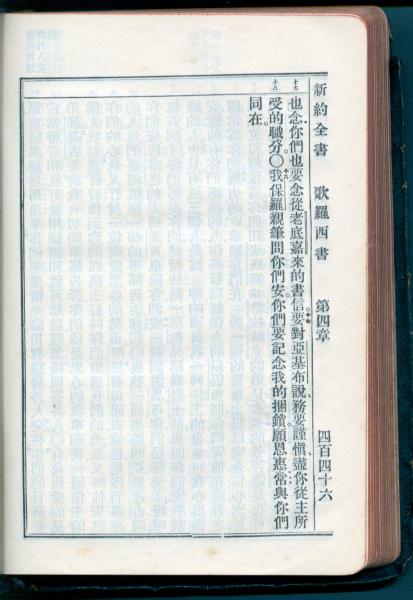 新約全書 歌羅西書 第四章 四百四十六
十七
也念你們也要念從老底嘉來的書信。十七要對亞基布說、務要謹慎、盡你從主所
十八
受的職分。〇十八我保羅親筆問你們安。你們要記念我的捆鎖。願恩惠常與你們
同在。